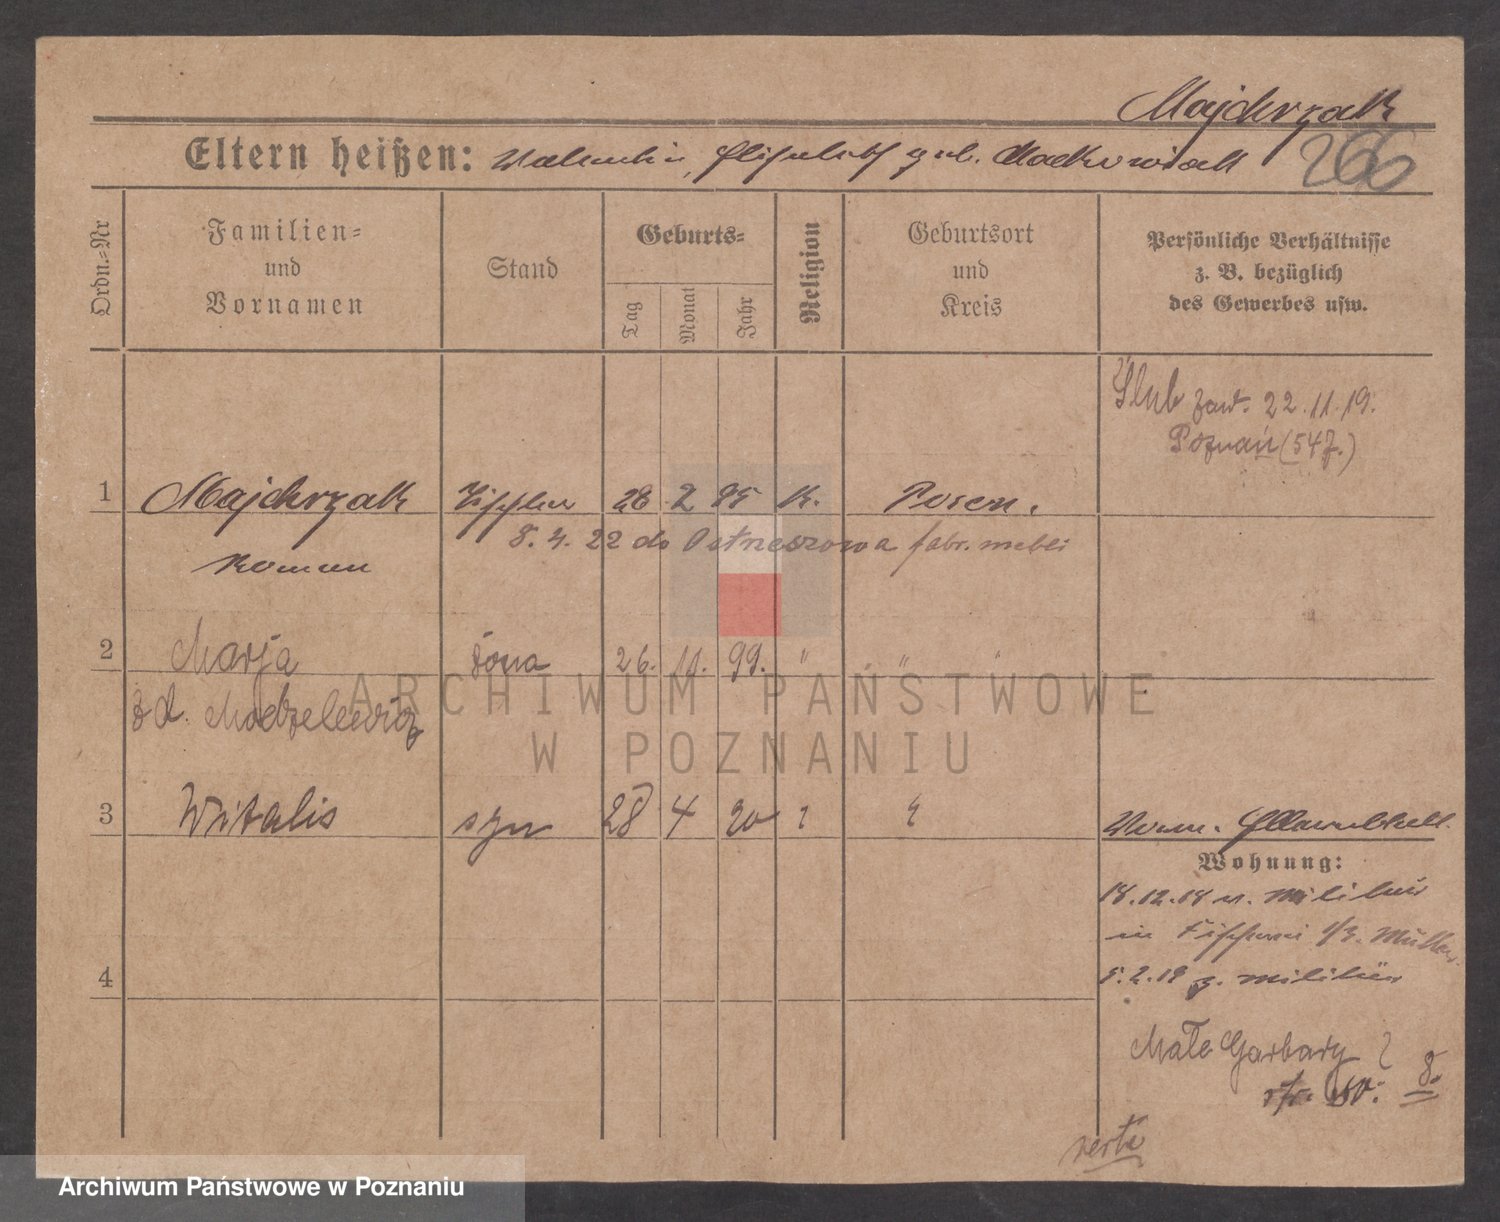 Majchrzak
266
Eltern heißen: Valentin, Elisabeth geb. Maćkowiak
Ordn.=Nr
Familien=
und
Vornamen
Stand
Geburts=
Tag
Monat
Jahr
Religion
Geburtsort
und
Kreis
Persönliche Verhältnisse
z. B. bezüglich
des Gewerbes usw.
Ślub zaw. 22.11.19.
Poznań (547.)
1 Majchrzak Tischler 28 2 95 K. Posen.
8.4.22 do Ostrzeszowa fabr. mebli
Roman
2 Marja żona 26. 11. 99. " " "
zd. Modzelewicz
3 Witalis syn 28 4 20
Wohnung:
18.12.18 v. Militär
in b/
5.2.19 z. Militär
4
Małe Garbary 8.
verte
ARCHIWUM PAŃSTWOWE
W POZNANIU
Archiwum Państwowe w Poznaniu